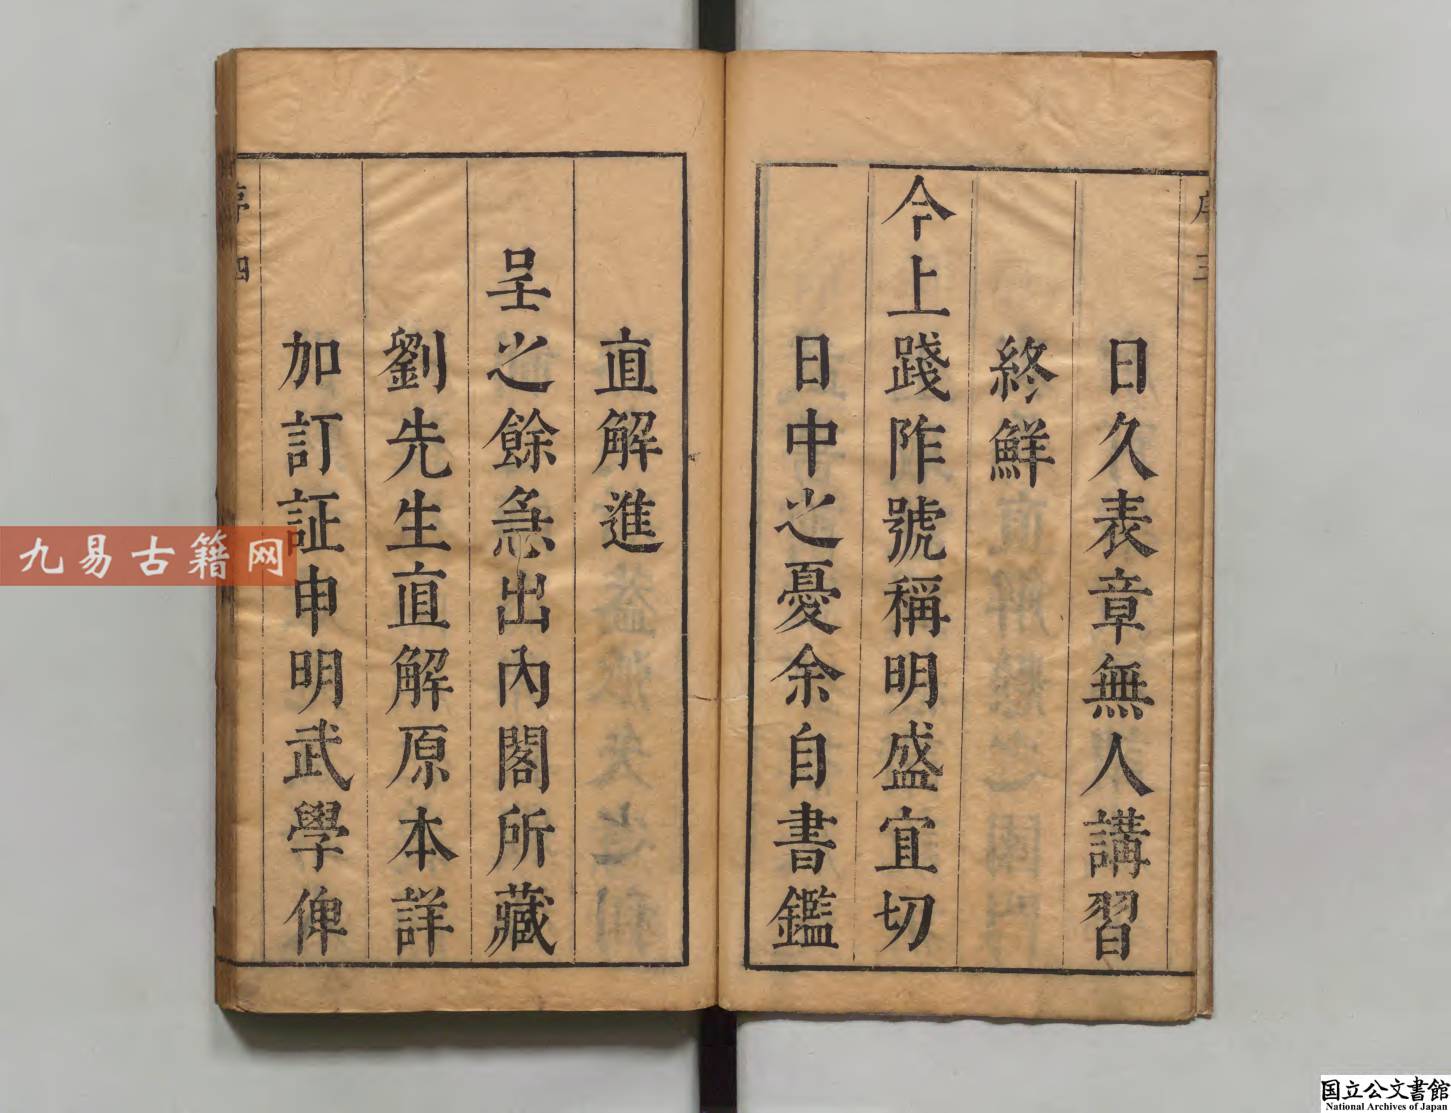 序 三
日久表章無人講習
終鮮
今上踐阼號稱明盛宜切
日中之憂余自書鑑
直解進
呈之餘急出內閣所藏
劉先生直解原本詳
加訂証申明武學俾
序 四
九易古籍网
国立公文書館
National Archives of Japan